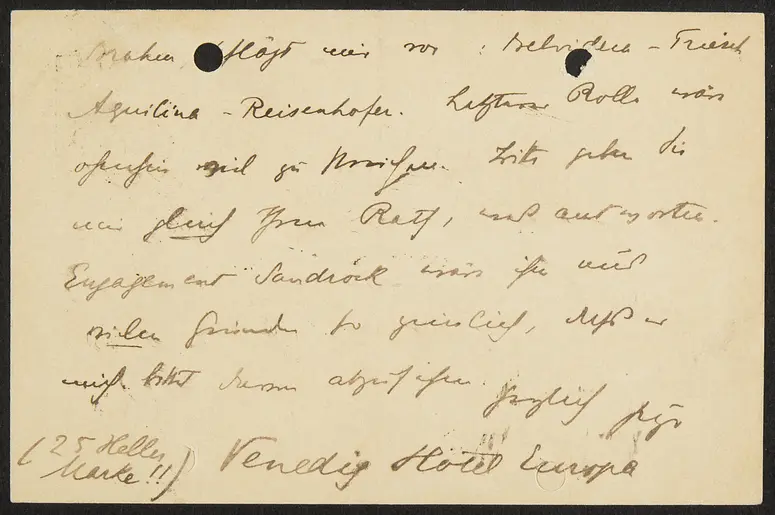 Brahm schlägt mir vor: Belvidera – Triesch
Aquilina – Reisenhofer. Letztere Rolle wäre
ohnehin viel zu streichen. Bitte geben Sie
mir gleich Ihren Rath, was antworten.
Engagement Sandrock wäre ihm aus
vielen Gründen so peinlich, dass er
mich bittet davon abzusehen. Herzlich Hugo
(25 Heller Venedig Hôtel Europa
Marke!!)